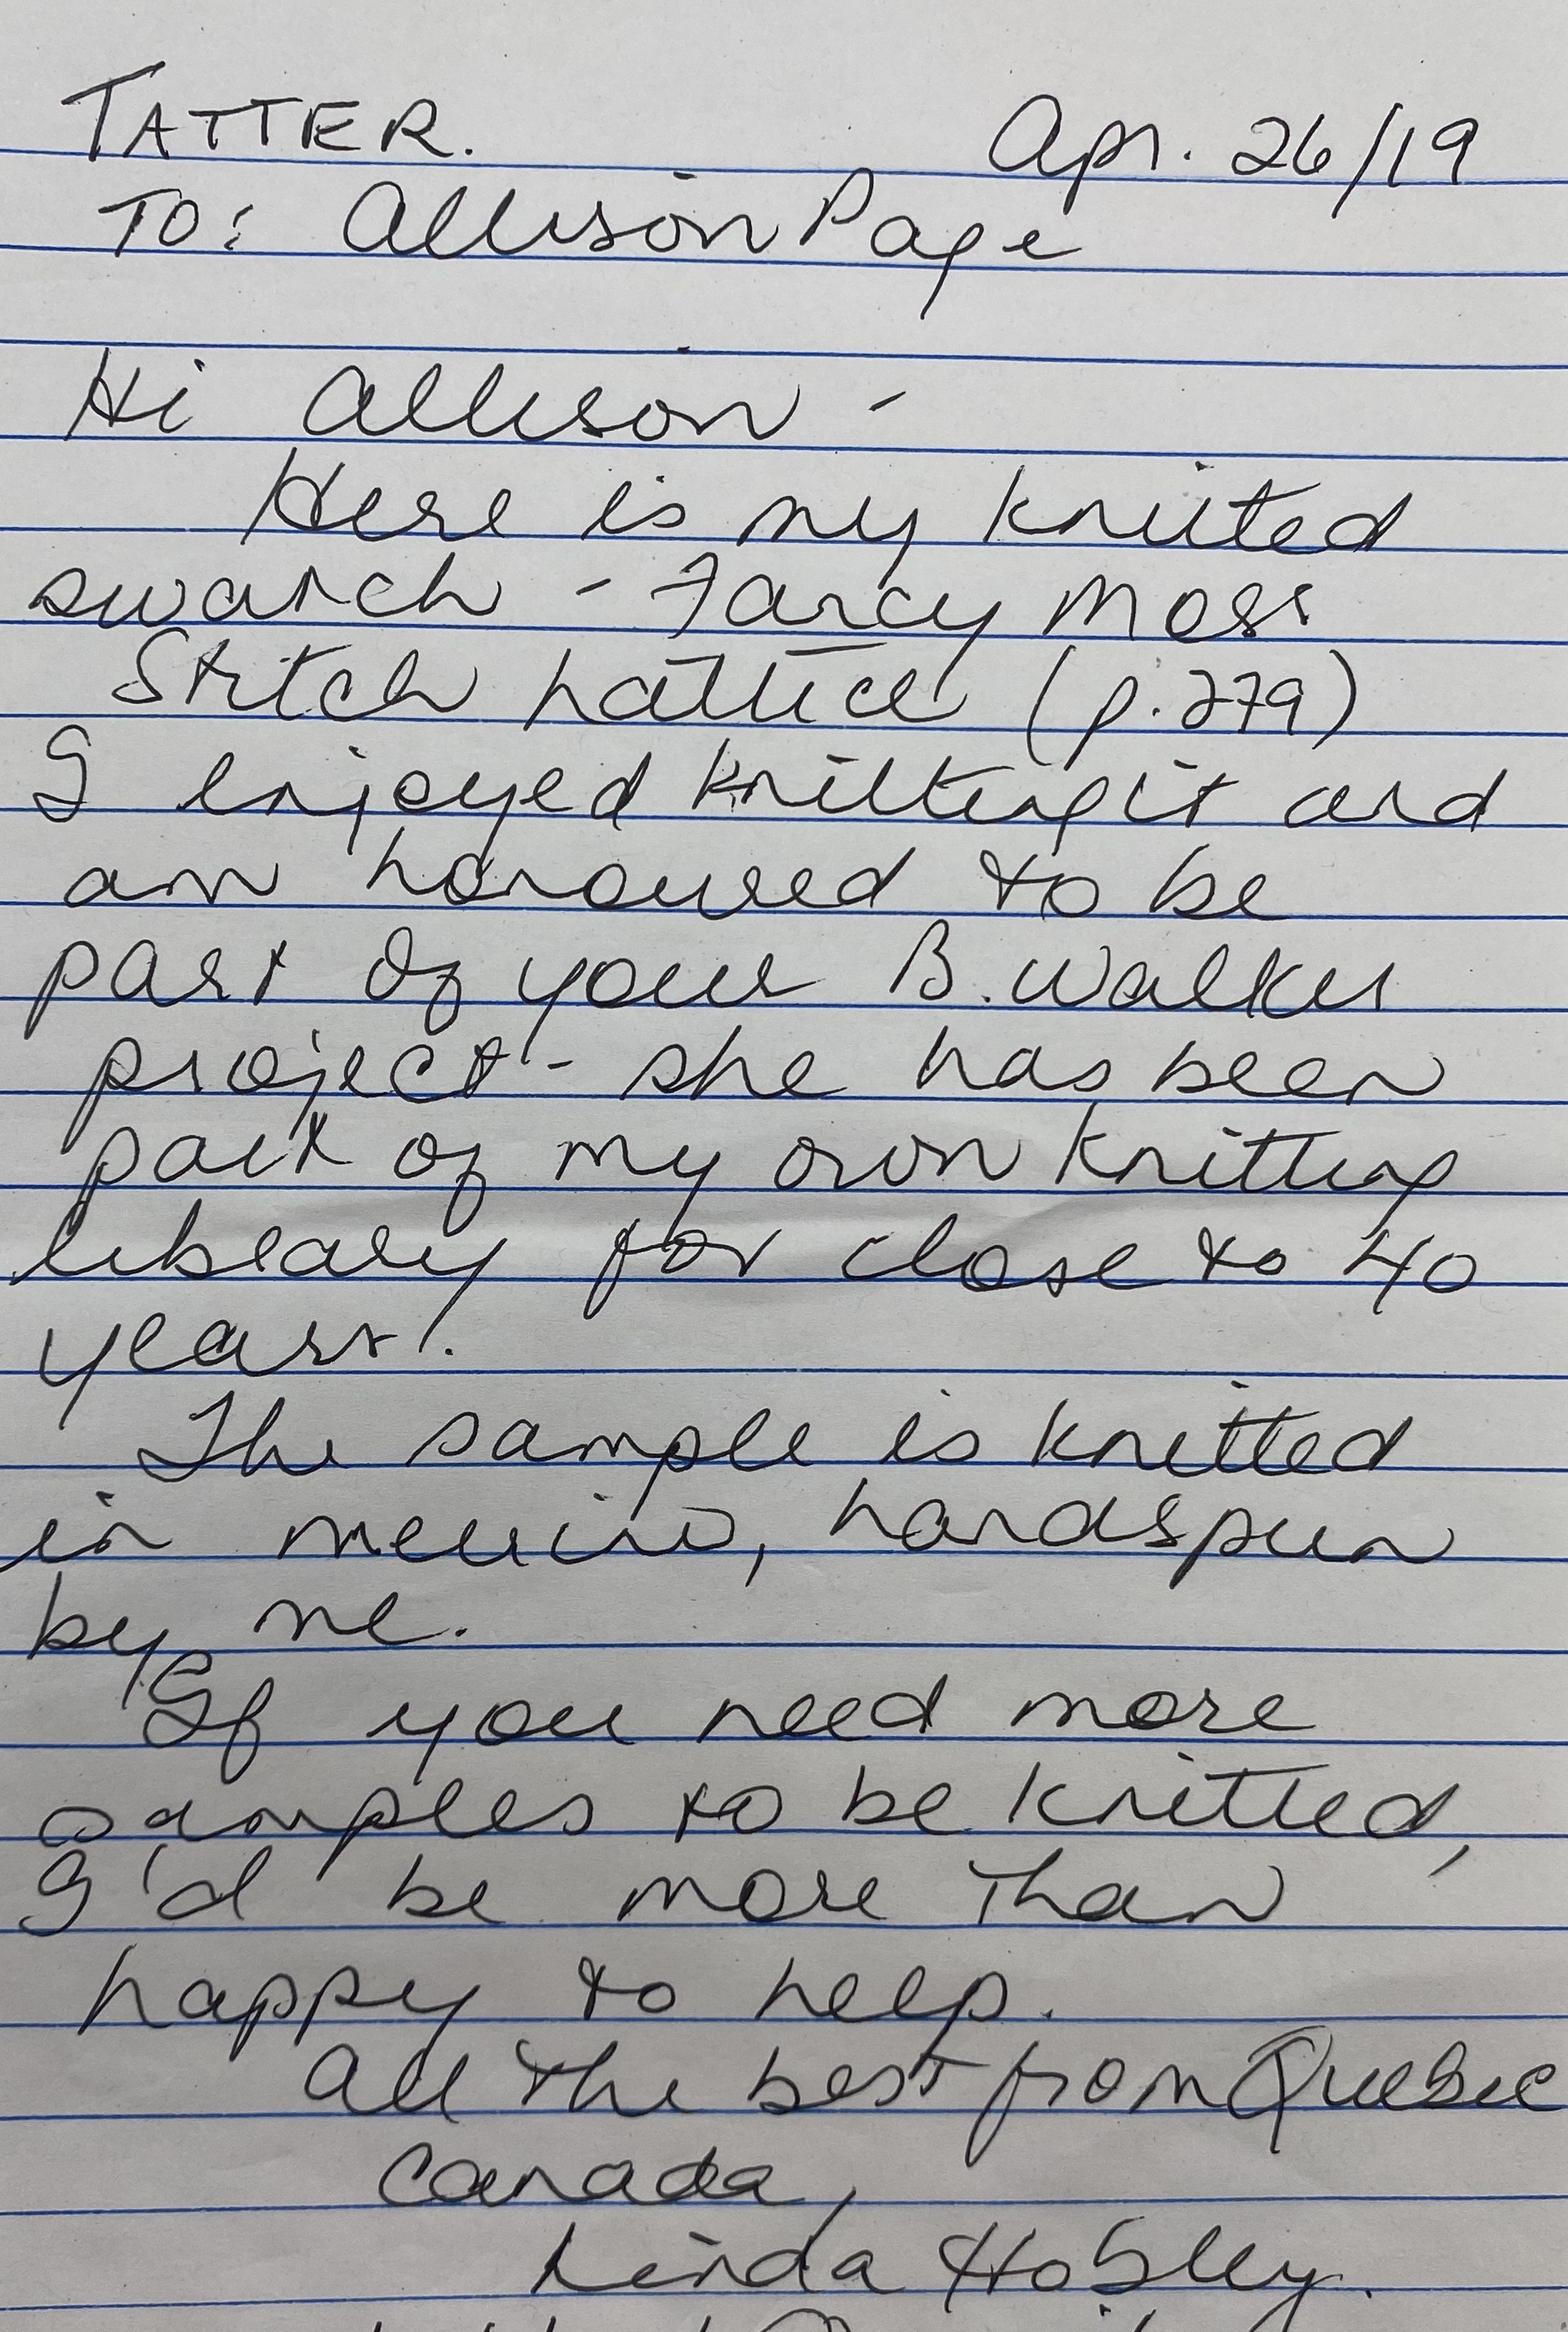 TATTER. Apr. 26/19
TO: Allison Page
Hi Allison -
Here is my knitted
swatch - Fancy Moss
Stitch Lattice (p. 279)
I enjoyed knitting it and
am honoured to be
part of your B. Walker
project - she has been
part of my own knitting
library for close to 40
years!
The sample is knitted
in merino, handspun
by me.
If you need more
samples to be knitted,
I'd be more than
happy to help.
All the best from Quebec
Canada,
Linda Hobley.